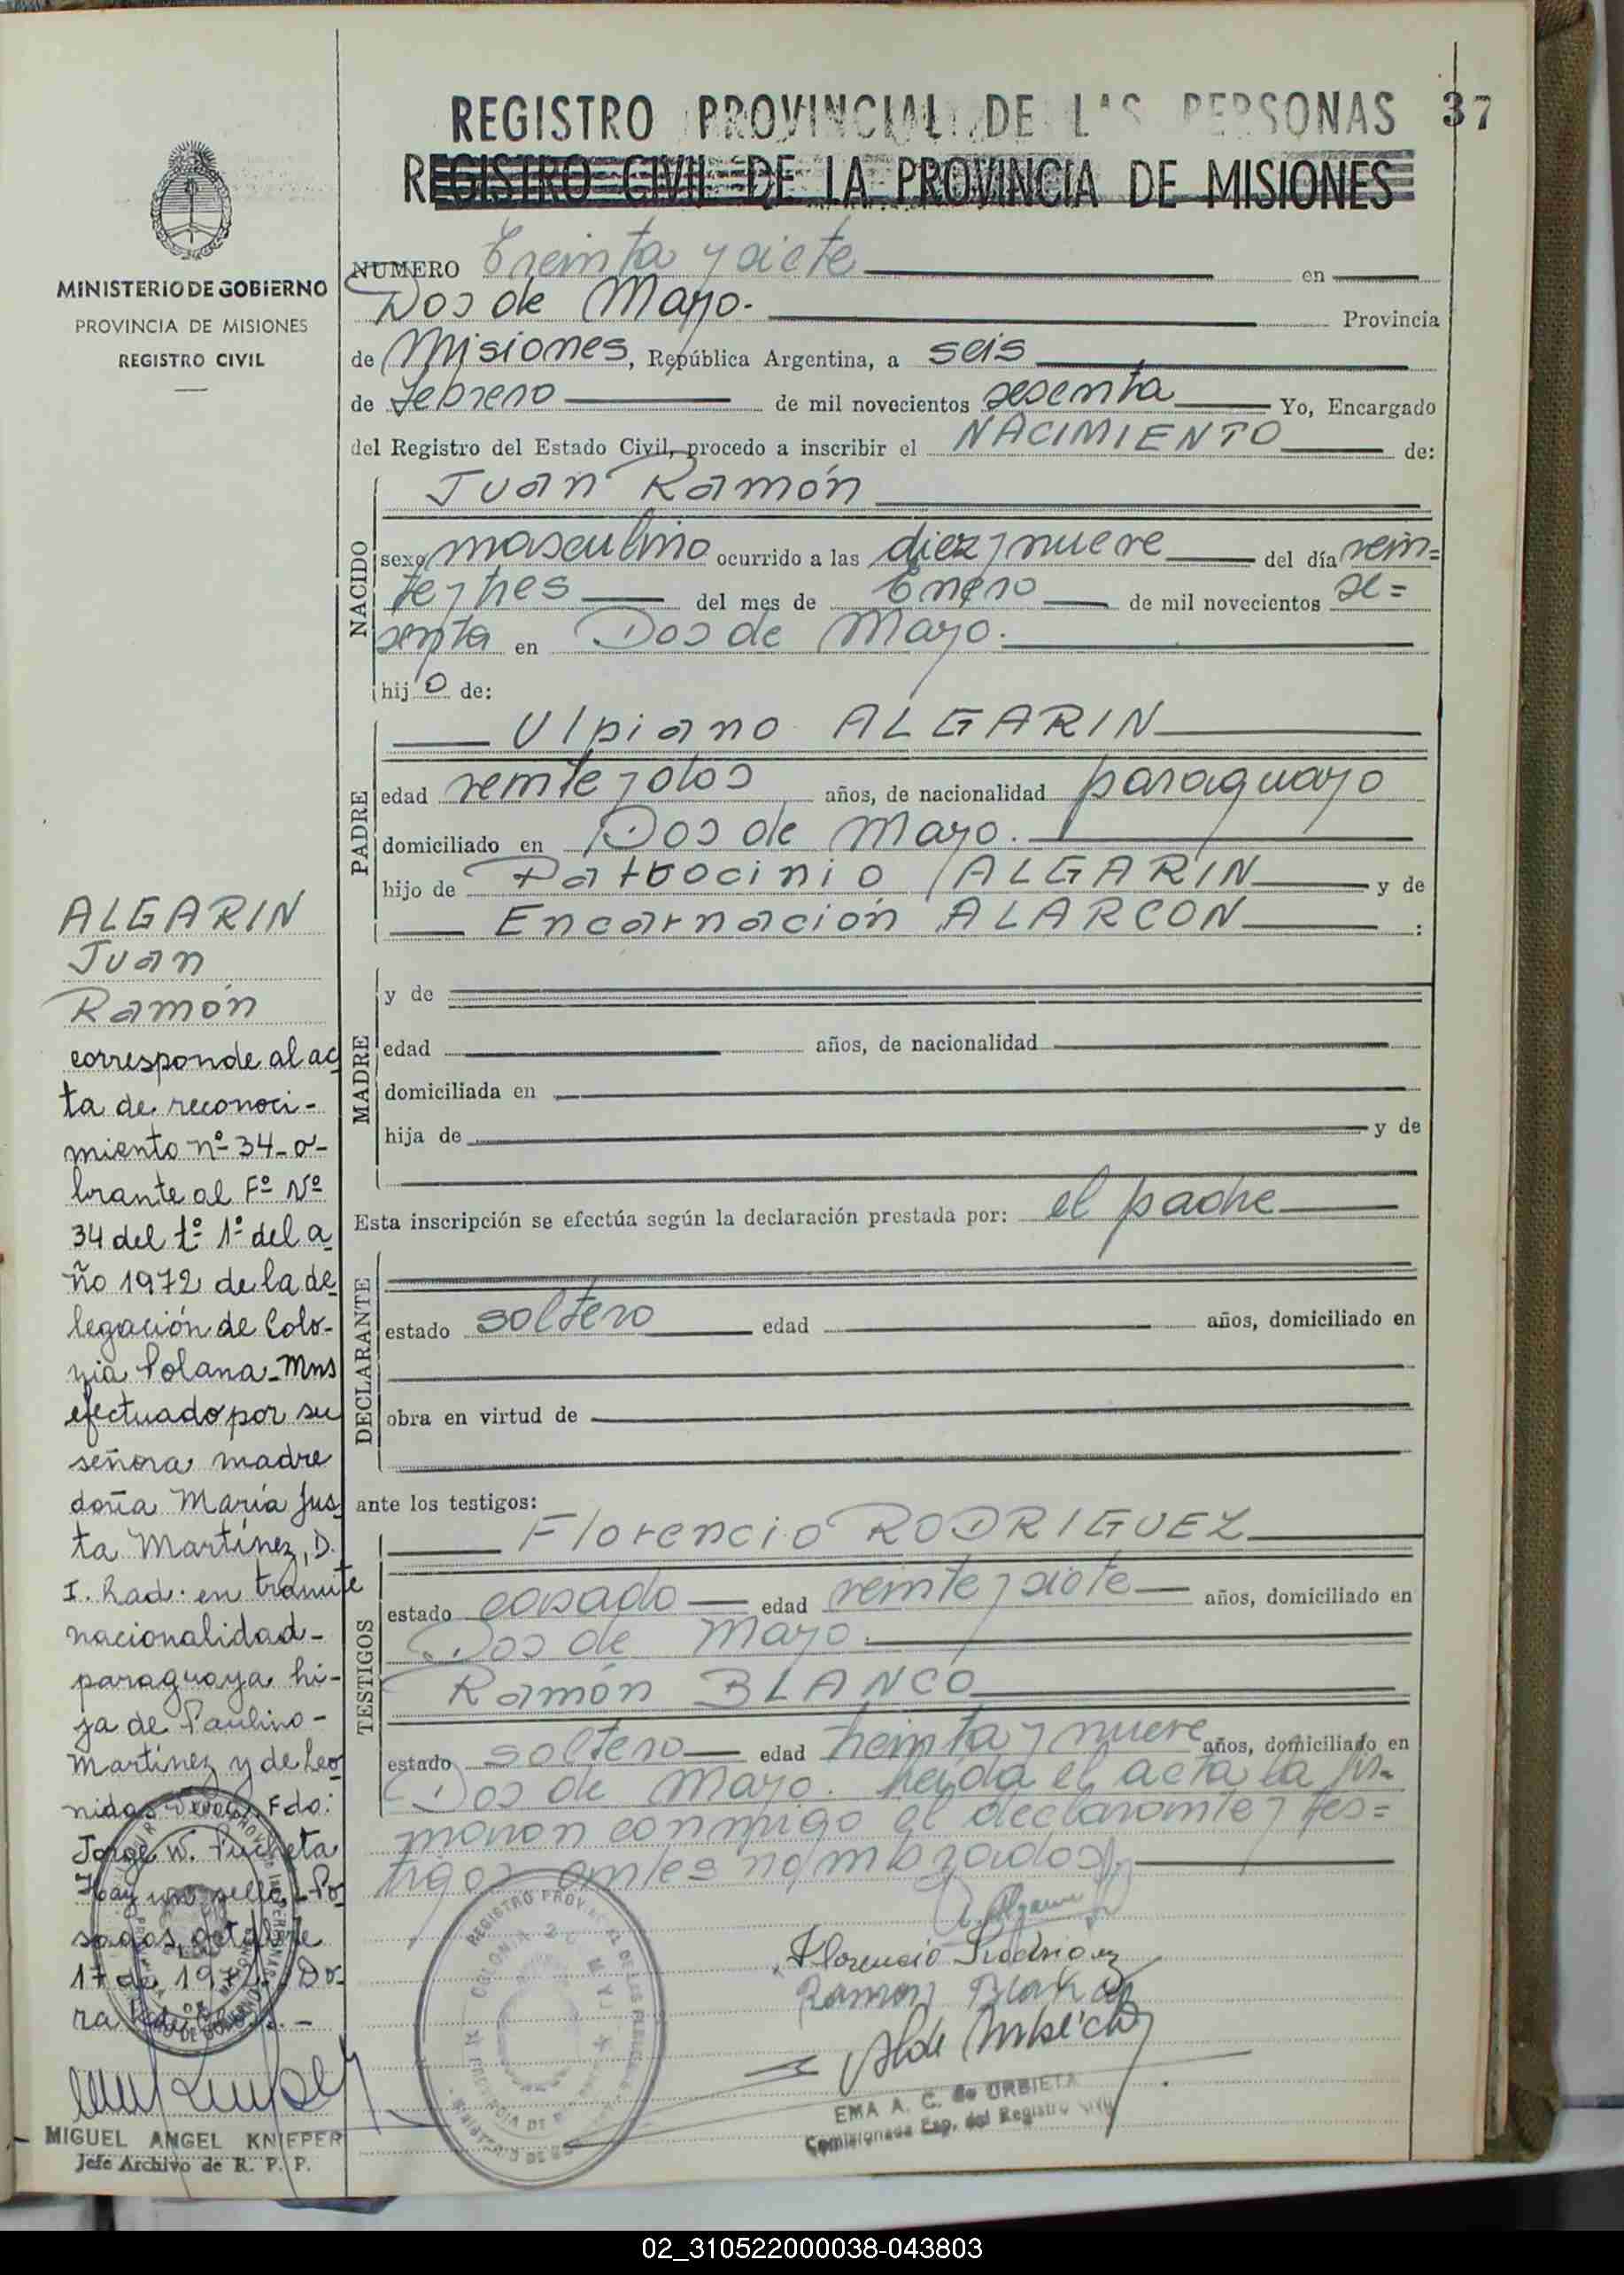 REGISTRO PROVINCIAL DE LAS PERSONAS 37
REGISTRO CIVIL DE LA PROVINCIA DE MISIONES
MINISTERIO DE GOBIERNO
PROVINCIA DE MISIONES
REGISTRO CIVIL
NUMERO Treinta y siete en
Dos de Mayo. Provincia
de Misiones, República Argentina, a seis
de Febrero de mil novecientos sesenta Yo, Encargado
del Registro del Estado Civil, procedo a inscribir el NACIMIENTO de:
Juan Ramón
NACIDO
sexo masculino ocurrido a las diez y nueve del día vein=
te y tres del mes de Enero de mil novecientos se=
senta en Dos de Mayo.
hijo de:
Ulpiano ALGARIN
PADRE
edad veinte y dos años, de nacionalidad paraguayo
domiciliado en Dos de Mayo.
hijo de Patrocinio ALGARIN y de
Encarnación ALARCON :
MADRE
y de
edad años, de nacionalidad
domiciliada en
hija de y de
Esta inscripción se efectúa según la declaración prestada por: el padre
DECLARANTE
estado soltero edad años, domiciliado en
obra en virtud de
ante los testigos:
Florencio RODRIGUEZ
TESTIGOS
estado casado edad veinte y siete años, domiciliado en
Dos de Mayo.
Ramón BLANCO
estado soltero edad treinta y nueve años, domiciliado en
Dos de Mayo. Leída el acta la fir=
maron conmigo el declarante y tes=
tigos antes nombrados.
Florencio Rodriguez
Ramon Blanco
EMA A. C. de URBIETA
Comisionada Esp. del Registro Civil
REGISTRO PROVINCIAL DE LAS PERSONAS
COLONIA 2 DE MAYO
ALGARIN
Juan
Ramón
corresponde al ac
ta de reconoci-
miento nº 34-o-
brante al Fº Nº
34 del tº 1º del a
ño 1972 de la de
legación de Colo-
nia Polana-Mns
efectuado por su
señora madre
doña María Jus
ta Martínez, D.
I. Rad: en tramite
nacionalidad-
paraguaya hi-
ja de Paulino-
Martínez y de Leo
nidas Fdo:
Jorge W. Pucheta
Hay un sello-Po
sadas, octubre
17 de 1972. Do
ra
MIGUEL ANGEL KNIEPER
Jefe Archivo de R. P. P.
02_310522000038-043803